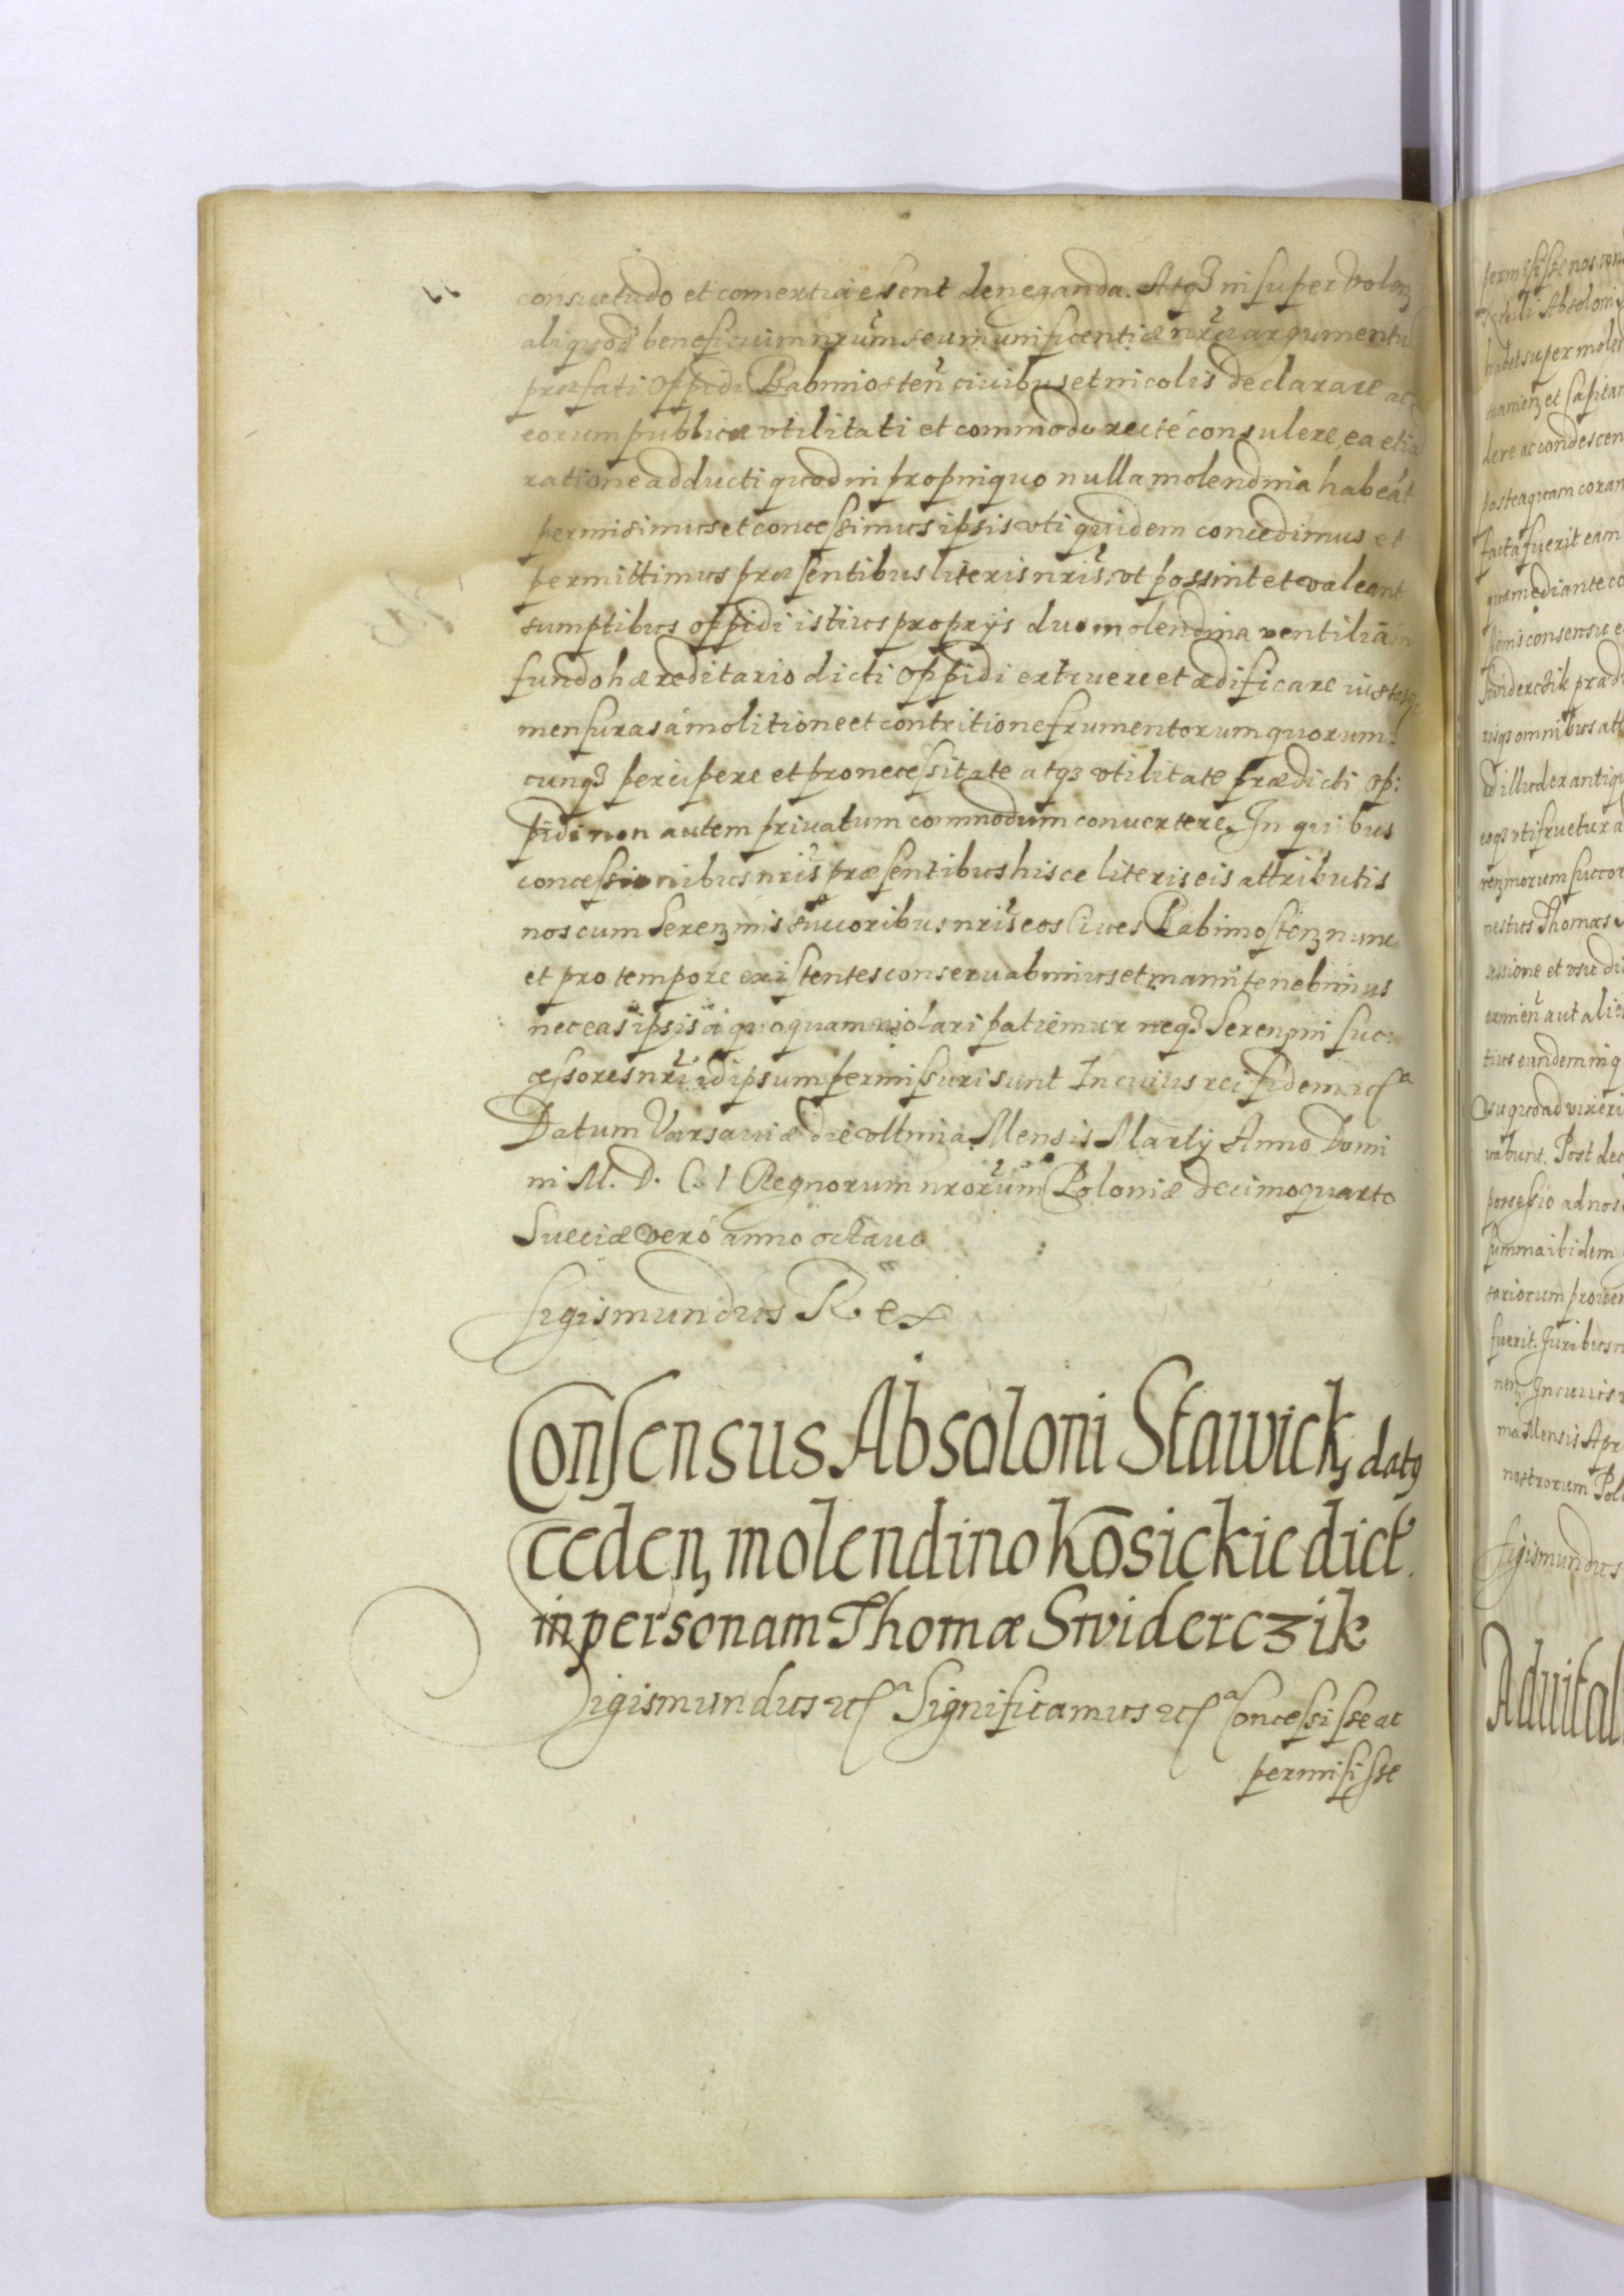 consuetudo et comertia essent deneganda. Atqз insuper volenз
aliquod beneficium nrũm seu munificentiæ nrẽ argumentũ
præfati Oppidi Babimosteñ civibus et incolis declarare ac
eorum publicæ vtilitati et commodo recté consulere, ea etiã
ratione adducti quod in propinquo nulla molendina habeãt
permisimus et concessimus ipsis vti quidem concedimus et
permittimus præsentibus literis nrĩs, vt possint et valeant
sumptibus oppidi istius proprijs duo molendina ventilia in
fundo hæreditario dicti Oppidi extruere et ædificare iustasqз
mensuras á molitione et contritione frumentorum quorum:
cunqз percipere et pro necessitate atqз vtilitate prædicti Op:
pidi non autem privatum commodum convertere. In quibus
concessionibus nrĩs præsentibus hisce literis eis attributis
nos cum Serenзmis succoribus nrĩs eos Cives Babimostenз nunc
et pro tempore existentes conservabimus et manutenebimus
nec eas ipsis á quoquam violari patiemur neqз Serenзmi suc:
cessores nrĩ id ipsum permissuri sunt In cuius rei fidem etcᵃ
Datum Varsaviæ die vltima Mensis Martij Anno Domi
ni M. D. C. I Regnorum nrorũm Poloniæ decimoquarto
Sueciæ veró anno octavo
Sigismundus Rex
Consensus Absoloni Stawickз datg
cedenз molendino Kosickie dict.
in personam Thomæ Swiderczik
Sigismundus etcᵃ Significamus etcᵃ Concessisse ac
permisisse
permisisse nos con
Absoloni
habet super molen
et Capitan
dere ac condescen
posteaquam coram
facta fuerit eam
quam mediante co
consensu e
Swiderczik prædi
omnibus att
ad illud ex antiqu
eoqз vti fruetur a
renзmorum succor
nestus Thomas
et vsu di
aut alie
tius eundem in q
quoad vixeri
vabunt. Post dec
possessio ad nos
summa ibidem
tariorum proven
fuerit. Juribus n
nenз. In cuius r
ma Mensis Apr
nostrorum Pol
Sigismundus
Advital